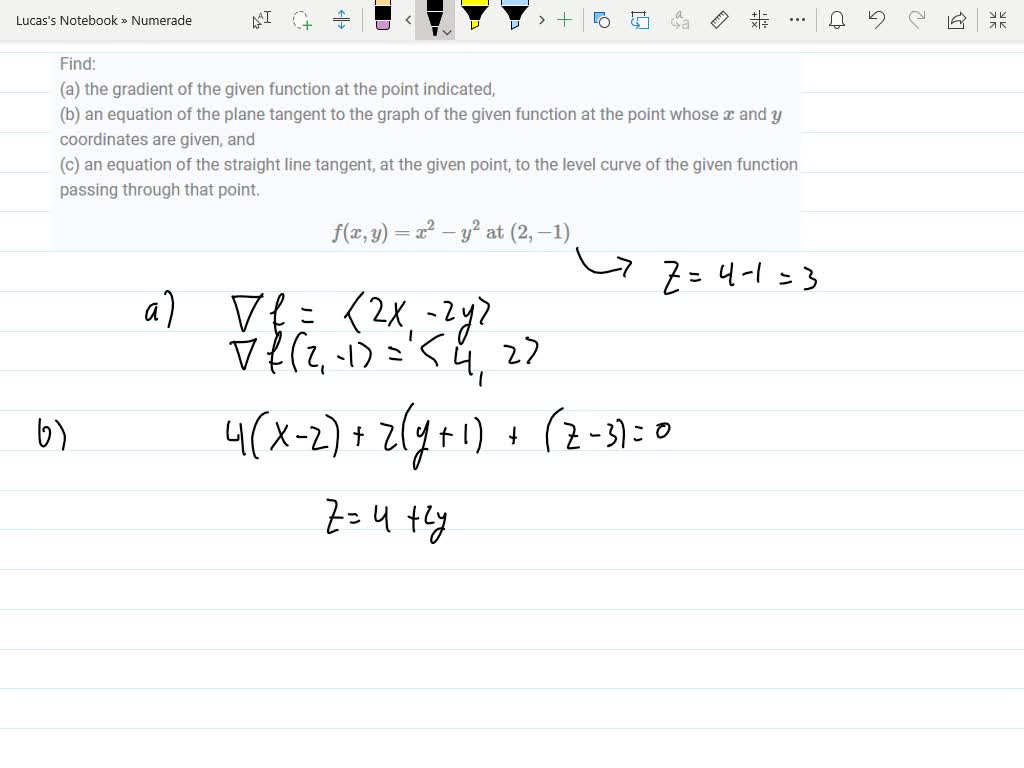 Lucas's Notebook » Numerade
Find:
(a) the gradient of the given function at the point indicated,
(b) an equation of the plane tangent to the graph of the given function at the point whose x and y
coordinates are given, and
(c) an equation of the straight line tangent, at the given point, to the level curve of the given function
passing through that point.
f(x, y) = x² − y² at (2, −1)
z = 4 - 1 = 3
a) ∇f = ⟨2x, -2y⟩
∇f(2, -1) = ⟨4, 2⟩
b) 4(x-2) + 2(y+1) + (z-3) = 0
z = 4 + 2y